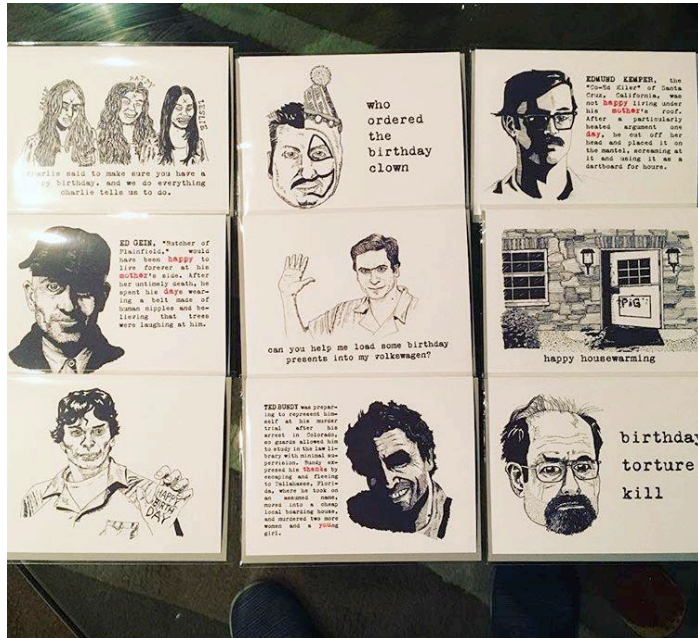 PATTY
LESLIE
Charlie said to make sure you have a
happy birthday, and we do everything
charlie tells us to do.
who
ordered
the
birthday
clown
EDMUND KEMPER, the
"Co-Ed Killer" of Santa
Cruz, California, was
not happy living under
his mother's roof.
After a particularly
heated argument one
day, he cut off her
head and placed it on
the mantel, screaming at
it and using it as a
dartboard for hours.
ED GEIN, "Butcher of
Plainfield," would
have been happy to
live forever at his
mother's side. After
her untimely death, he
spent his days wear-
ing a belt made of
human nipples and be-
lieving that trees
were laughing at him.
can you help me load some birthday
presents into my volkswagen?
PiG
happy housewarming
HAPPY
BIRTH
DAY
TED BUNDY was prepar-
ing to represent him-
self at his murder
trial after his
arrest in Colorado,
so guards allowed him
to study in the law li-
brary with minimal su-
pervision. Bundy ex-
pressed his thanks by
escaping and fleeing
to Tallahassee, Flori-
da, where he took on
an assumed name,
moved into a cheap
local boarding house,
and murdered two more
women and a young
girl.
birthday
torture
kill